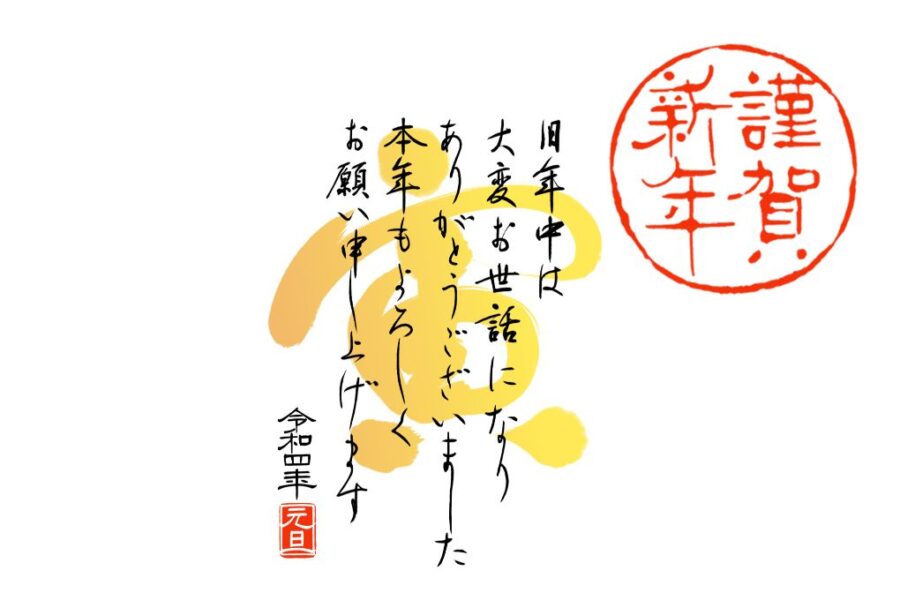 謹賀
新年
旧年中は
大変お世話になり
ありがとうございました
本年もよろしく
お願い申し上げます
令和四年
元旦
寅